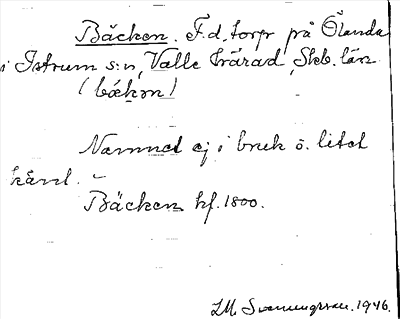 Bäcken. F.d. torp på Ölanda
i Istrum s:n, Valle härad, Skb. län
(bækɘn)
Namnet ej i bruk o. litet
känt. –
Bäcken hf. 1800.
I.M. Svenningsson. 1946.